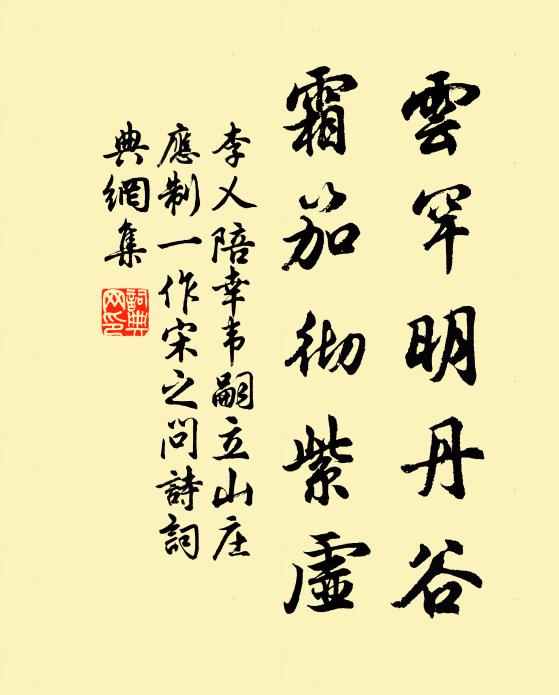 雲罕明丹谷
霜笳彻紫虛
李乂陪幸韦嗣立山庄
應制一作宋之问詩詞
典網集
詞典网印